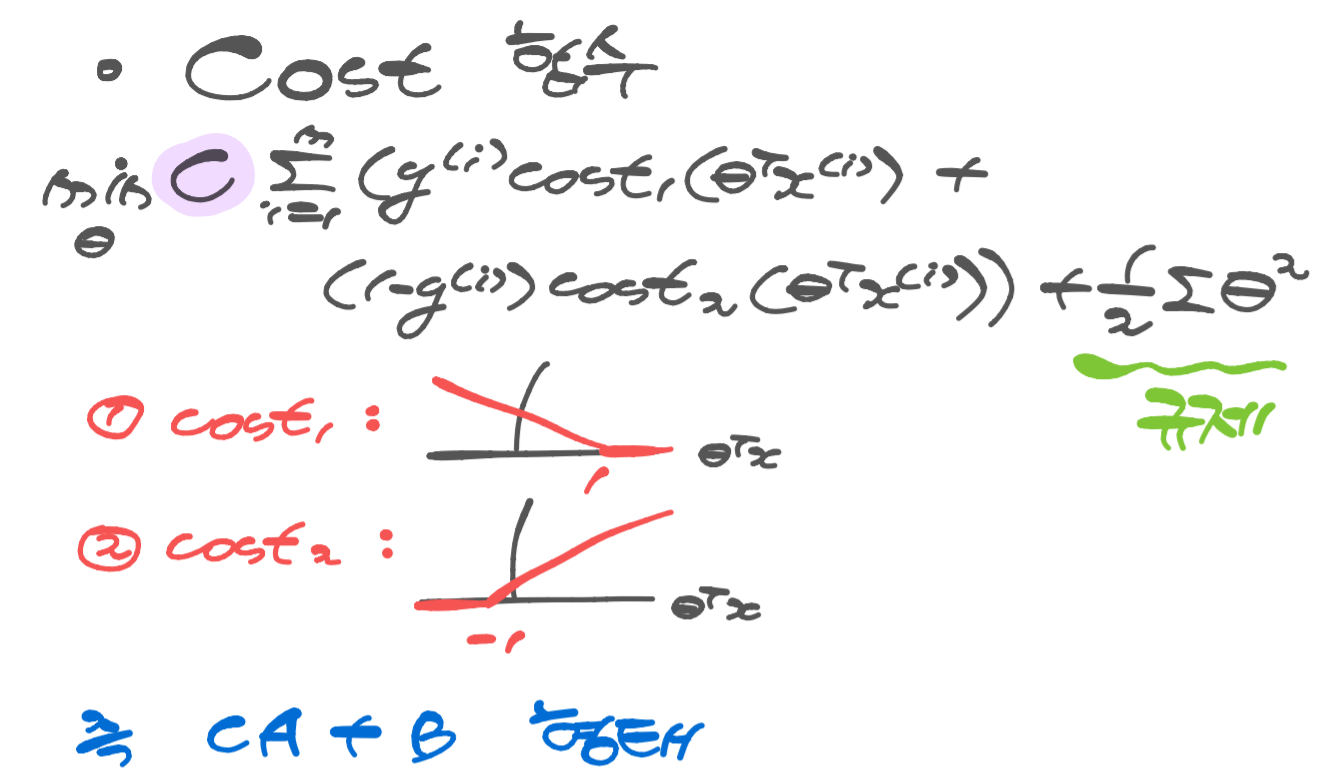 • Cost 함수
min θ C Σ i=1 m (y⁽ⁱ⁾cost₁(θᵀx⁽ⁱ⁾) +
(1-y⁽ⁱ⁾)cost₂(θᵀx⁽ⁱ⁾)) + 1/2 Σθ²
규제
① cost₁ :
θᵀx
1
② cost₂ :
θᵀx
-1
즉 CA + B 형태